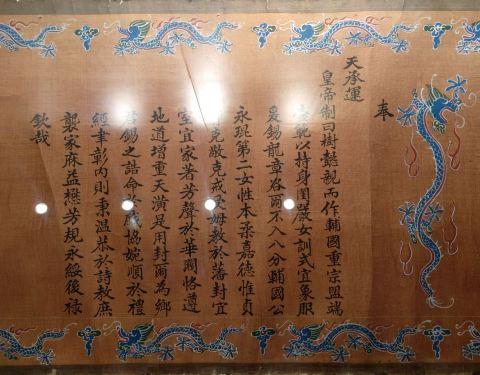 奉
天承運
皇帝制曰樹懿親而作輔國重宗盟端
範以持身閨嚴女訓式宜象服
爰錫龍章咨爾不入八分輔國公
永琨第二女性本柔嘉德惟貞
克敬克戒姆教於藩封宜
室宜家著芳聲於華閥恪遵
地道增重天潢是用封爾為鄉
君錫之誥命於戲協婉順於禮
經聿彰內則秉溫恭於詩教庶
襲家庥益燕芳規永綏後祿
欽哉